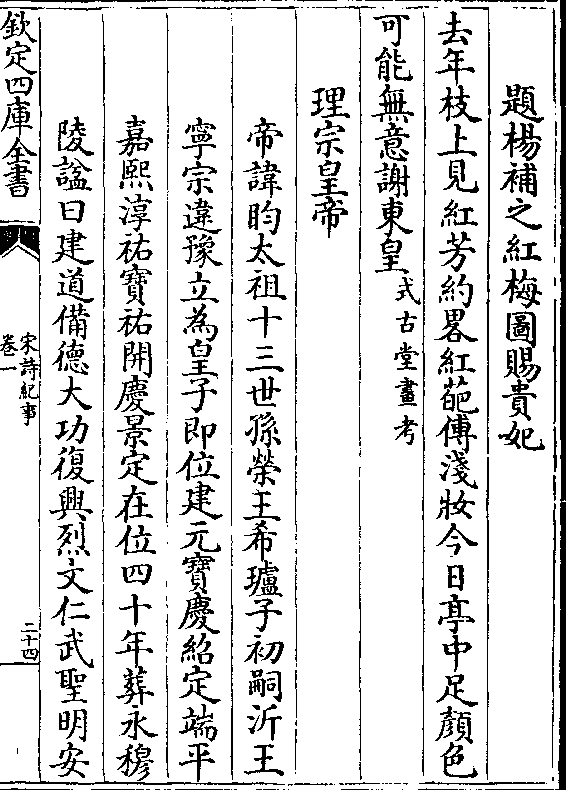 題楊補之紅梅圖賜貴妃
去年枝上見紅芳約畧紅葩傅淺妝今日亭中足顏色
可能無意謝東皇式古堂畫考
理宗皇帝
帝諱昀太祖十三世孫榮王希瓐子初嗣沂王
寧宗違豫立為皇子即位建元寶慶紹定端平
嘉熙淳祐寶祐開慶景定在位四十年葬永穆
陵諡曰建道備德大功復興烈文仁武聖明安
欽定四庫全書
宋詩紀事
卷一
二十四